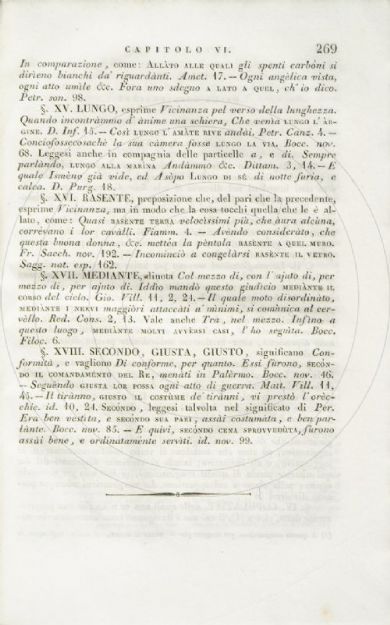 CAPITOLO VI. 269
In comparazione, come: ALLÀTO ALLE QUALI gli spenti carbóni si
dirìeno bianchi da' riguardànti. Amet. 17. — Ogni angèlica vista,
ogni atto umìle &c. Fora uno sdegno A LATO A QUEL, ch' io dico.
Petr. son. 98.
§. XV. LUNGO, esprime Vicinanza pel verso della lunghezza.
Quando incontràmmo d' ànime una schiera, Che venìa LUNGO L' ÀR-
GINE. D. Inf. 15. — Così LUNGO L' AMÀTE RIVE andài. Petr. Canz. 4. —
Conciofossecosachè la sua càmera fosse LUNGO LA VIA. Bocc. nov.
68. Leggesi anche in compagnia delle particelle a, e di. Sempre
parlàndo, LUNGO ALLA MARÌNA Andàmmo &c. Dittam. 3, 14. — E
quale Ismèno già vide, ed Asòpo LUNGO DI SÈ di notte furia, e
calca. D. Purg. 18.
§. XVI. RASENTE, preposizione che, del pari che la precedente,
esprime Vicinanza, ma in modo che la cosa tocchi quella che le è al-
lato, come: Quasi RASENTE TERRA velocìssimi più, che àura alcùna,
corrévano i lor cavàlli. Fiamm. 4. — Avéndo consideràto, che
questa buona donna, &c. mettéa la pèntola RASÈNTE A QUEL MURO.
Fr. Sacch. nov. 192. — Incominciò a congelàrsi RASÈNTE IL VETRO.
Sagg. nat. esp. 162.
§. XVII. MEDIANTE, dinota Col mezzo di, con l' ajuto di, per
mezzo di, per ajuto di. Iddìo mandò questo giudicio MEDIÀNTE IL
CORSO del cielo. Gio. Vill. 11, 2, 24. — Il quale moto disordinàto,
MEDIANTE I NERVI maggióri attaccàti a' mìnimi, si comùnica al cer-
vèllo. Red. Cons. 2, 13. Vale anche Tra, nel mezzo. Infìno a
questo luogo, MEDIÀNTE MOLTI AVVÈRSI CASI, l' ho seguìta. Bocc.
Filoc. 6.
§. XVIII. SECONDO, GIUSTA, GIUSTO, significano Con-
formità, e vagliono Di conforme, per quanto. Essi fùrono, SECÓN-
DO IL COMANDAMÉNTO DEL RE, menàti in Palèrmo. Bocc. nov. 46.
— Seguèndo GIUSTA LOR POSSA ogni atto di guerra. Matt. Vill. 11,
45. — Il tirànno, GIUSTO IL COSTÙME de' tirànni, vi prestò l' oréc-
chie. id. 10, 24. SECÓNDO, leggesi talvolta nel significato di Per.
Era ben vestìta, e SECÓNDO SUA PARI, assài costumàta, e ben par-
lànte. Bocc. nov. 85. — E quivi, SECÓNDO CENA SPROVVEDÙTA, fùrono
assài bene, e ordinataménte servìti. id. nov. 99.